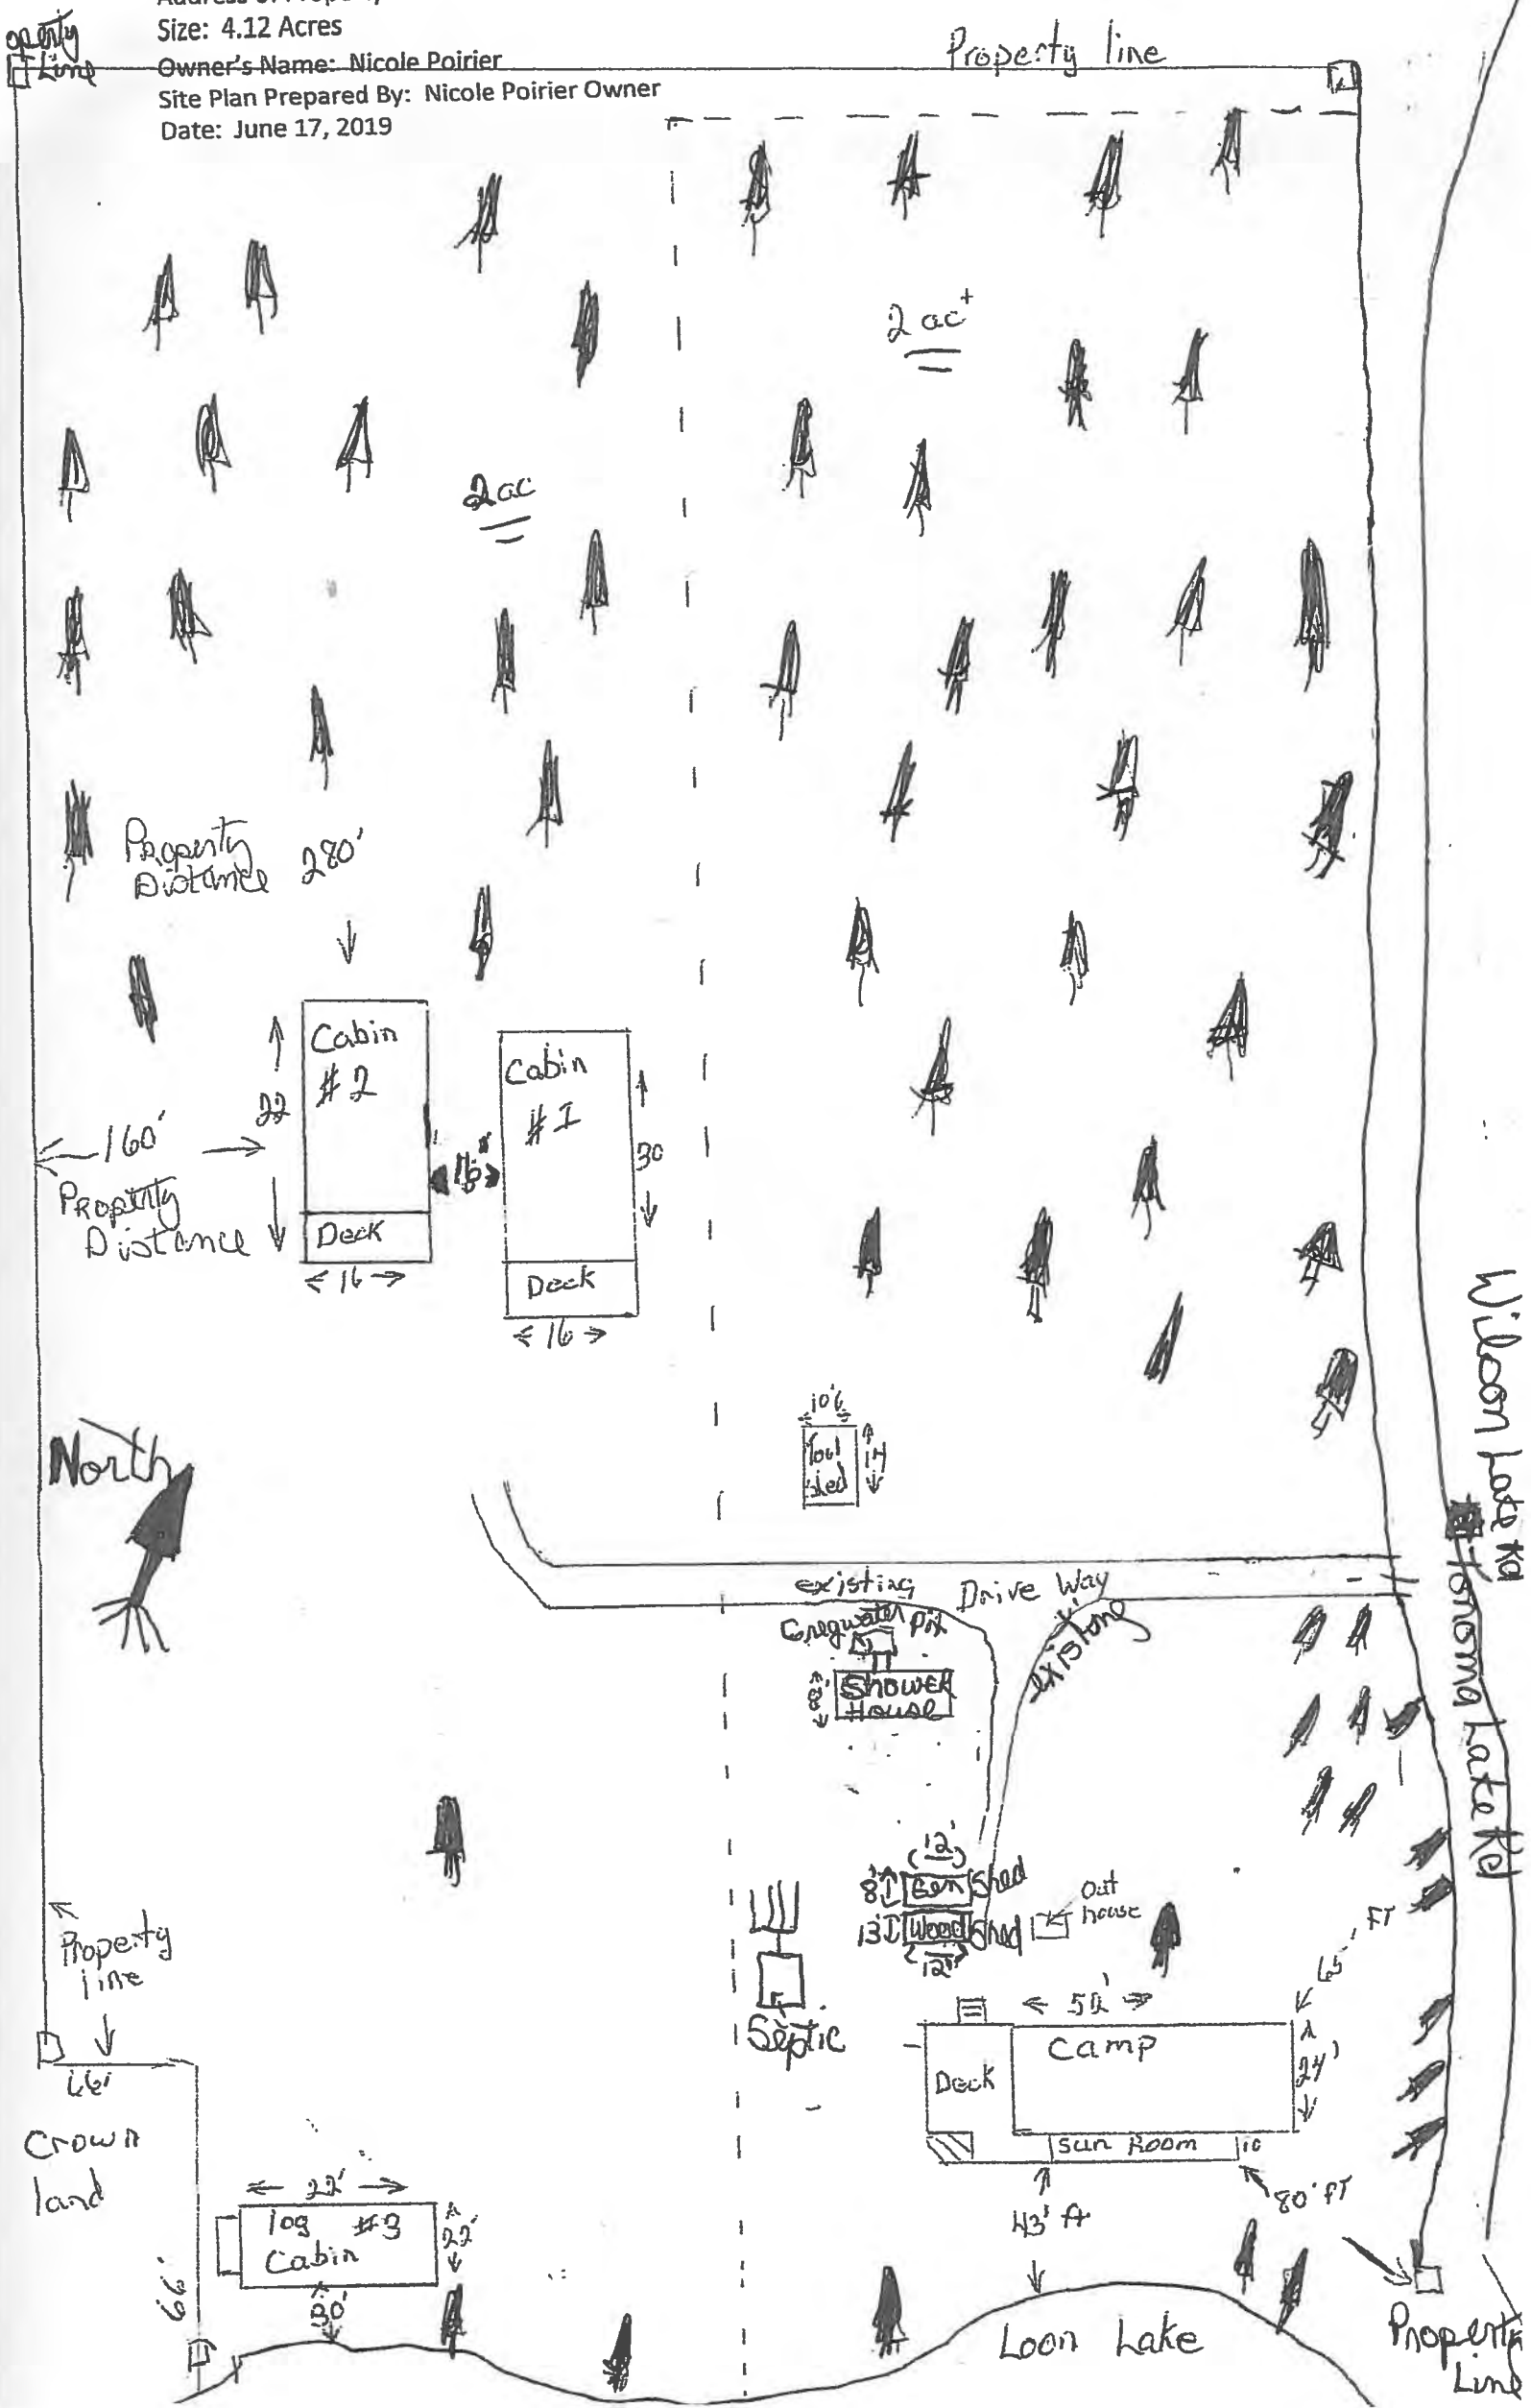 Size: 4.12 Acres
Owner's Name: Nicole Poirier
Site Plan Prepared By: Nicole Poirier Owner
Date: June 17, 2019
operty
Line
Property line
2 ac+
2ac
Property
Distance 280'
Cabin
#2
22
Deck
< 16 >
16'
Cabin
#1
30
Deck
< 16 >
160'
Property
Distance
North
10'6
Tool
shed
14
existing Drive Way
existing
Greywater Pit
8'
Shower
House
12'
8' Gen Shed
13' Wood Shed
12'
Out
house
Septic
65' FT
52'
Camp
24'
Deck
Sun Room 10
43' ft
80' FT
Property
line
66'
Crown
land
66'
22'
log #3
Cabin
22'
30'
Loon Lake
Property
Line
Lake Rd
Lake Rd